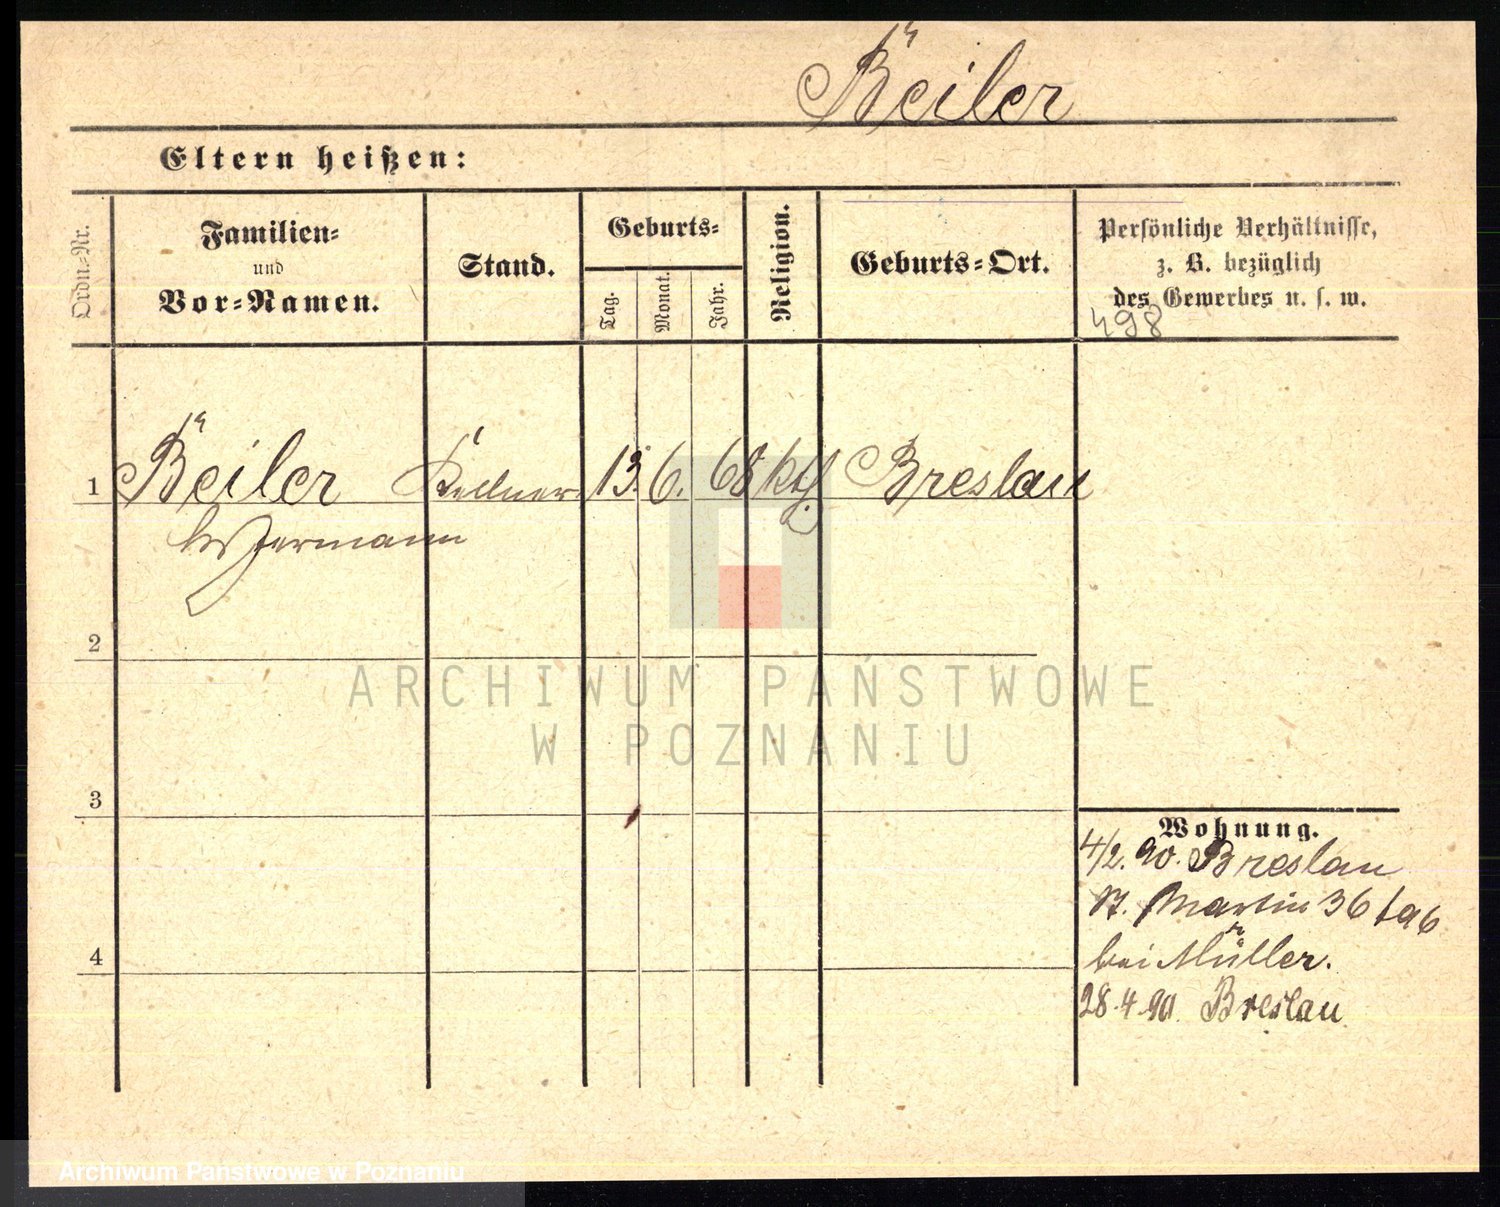 Beiler
Eltern heißen:
Ordn.-Nr.
Familien-
und
Vor-Namen.
Stand.
Geburts-
Tag.
Monat.
Jahr.
Religion.
Geburts-Ort.
Persönliche Verhältnisse,
z. B. bezüglich
des Gewerbes u. s. w.
498
1 Beiler Kellner 13. 6. 68 kth. Breslau
Hermann
2
3
4
Wohnung.
4/2. 90. Breslau
St. Martin 36
bei Müller.
28.4.90 Breslau
ARCHIWUM PAŃSTWOWE
W POZNANIU
Archiwum Państwowe w Poznaniu